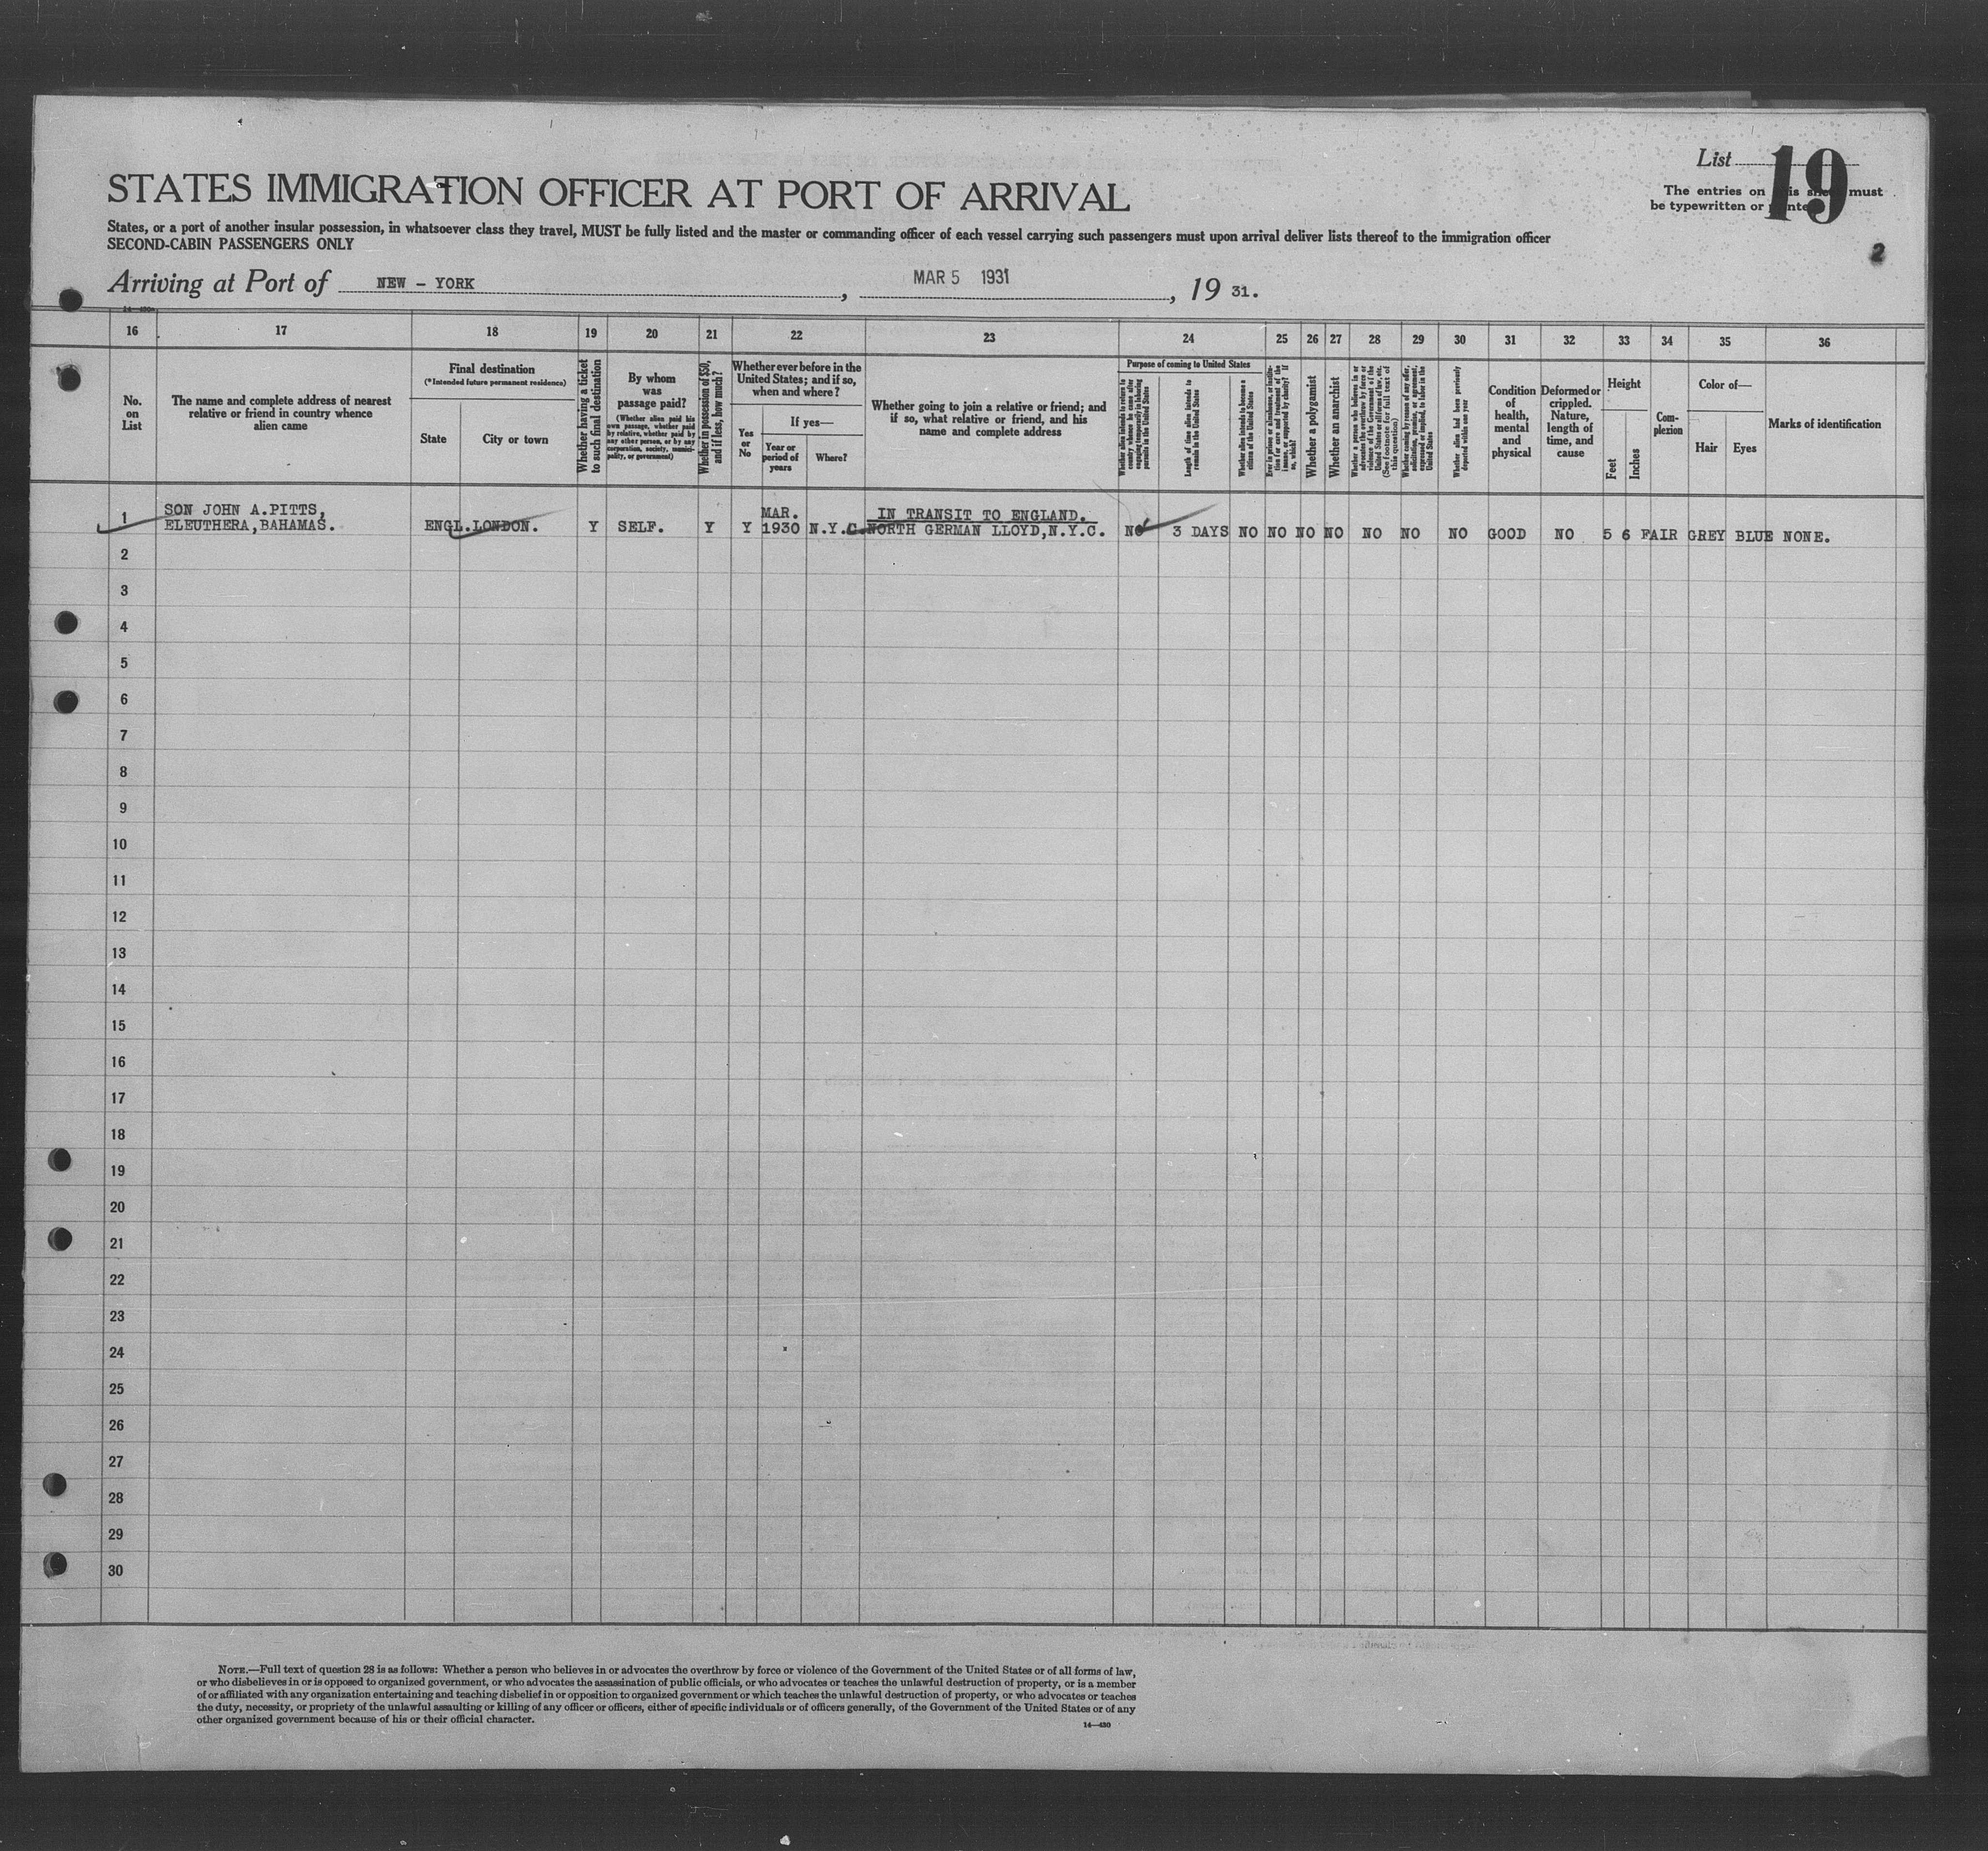 List 19
The entries on this sheet must
be typewritten or printed
2
STATES IMMIGRATION OFFICER AT PORT OF ARRIVAL
States, or a port of another insular possession, in whatsoever class they travel, MUST be fully listed and the master or commanding officer of each vessel carrying such passengers must upon arrival deliver lists thereof to the immigration officer
SECOND-CABIN PASSENGERS ONLY
Arriving at Port of NEW - YORK, MAR 5 1931, 19 31.
14—430
16 17 18 19 20 21 22 23 24 25 26 27 28 29 30 31 32 33 34 35 36
No.
on
List
The name and complete address of nearest
relative or friend in country whence
alien came
Final destination
(*Intended future permanent residence)
State
City or town
Whether having a ticket
to such final destination
By whom
was
passage paid?
(Whether alien paid his
own passage, whether paid
by relative, whether paid by
any other person, or by any
corporation, society, munici-
pality, or government)
Whether in possession of $50,
and if less, how much?
Whether ever before in the
United States; and if so,
when and where?
Yes
or
No
If yes—
Year or
period of
years
Where?
Whether going to join a relative or friend; and
if so, what relative or friend, and his
name and complete address
Purpose of coming to United States
Whether alien intends to return to
country whence he came after
engaging temporarily in laboring
pursuits in the United States
Length of time alien intends to
remain in the United States
Whether alien intends to become a
citizen of the United States
Ever in prison or almshouse, or institu-
tion for care and treatment of the
insane, or supported by charity? If
so, which?
Whether a polygamist
Whether an anarchist
Whether a person who believes in or
advocates the overthrow by force or
violence of the Government of the
United States or all forms of law, etc.
(See footnote for full text of
this question)
Whether coming by reason of any offer,
solicitation, promise, or agreement,
expressed or implied, to labor in the
United States
Whether alien had been previously
deported within one year
Condition
of
health,
mental
and
physical
Deformed or
crippled.
Nature,
length of
time, and
cause
Height
Feet
Inches
Com-
plexion
Color of—
Hair
Eyes
Marks of identification
1 SON JOHN A.PITTS,
ELEUTHERA,BAHAMAS. ENGL.LONDON. Y SELF. Y Y MAR. 1930 N.Y.C. IN TRANSIT TO ENGLAND.
NORTH GERMAN LLOYD,N.Y.C. NO 3 DAYS NO NO NO NO NO NO NO GOOD NO 5 6 FAIR GREY BLUE NONE.
2
3
4
5
6
7
8
9
10
11
12
13
14
15
16
17
18
19
20
21
22
23
24
25
26
27
28
29
30
NOTE.—Full text of question 28 is as follows: Whether a person who believes in or advocates the overthrow by force or violence of the Government of the United States or of all forms of law,
or who disbelieves in or is opposed to organized government, or who advocates the assassination of public officials, or who advocates or teaches the unlawful destruction of property, or is a member
of or affiliated with any organization entertaining and teaching disbelief in or opposition to organized government or which teaches the unlawful destruction of property, or who advocates or teaches
the duty, necessity, or propriety of the unlawful assaulting or killing of any officer or officers, either of specific individuals or of officers generally, of the Government of the United States or of any
other organized government because of his or their official character.
14—430